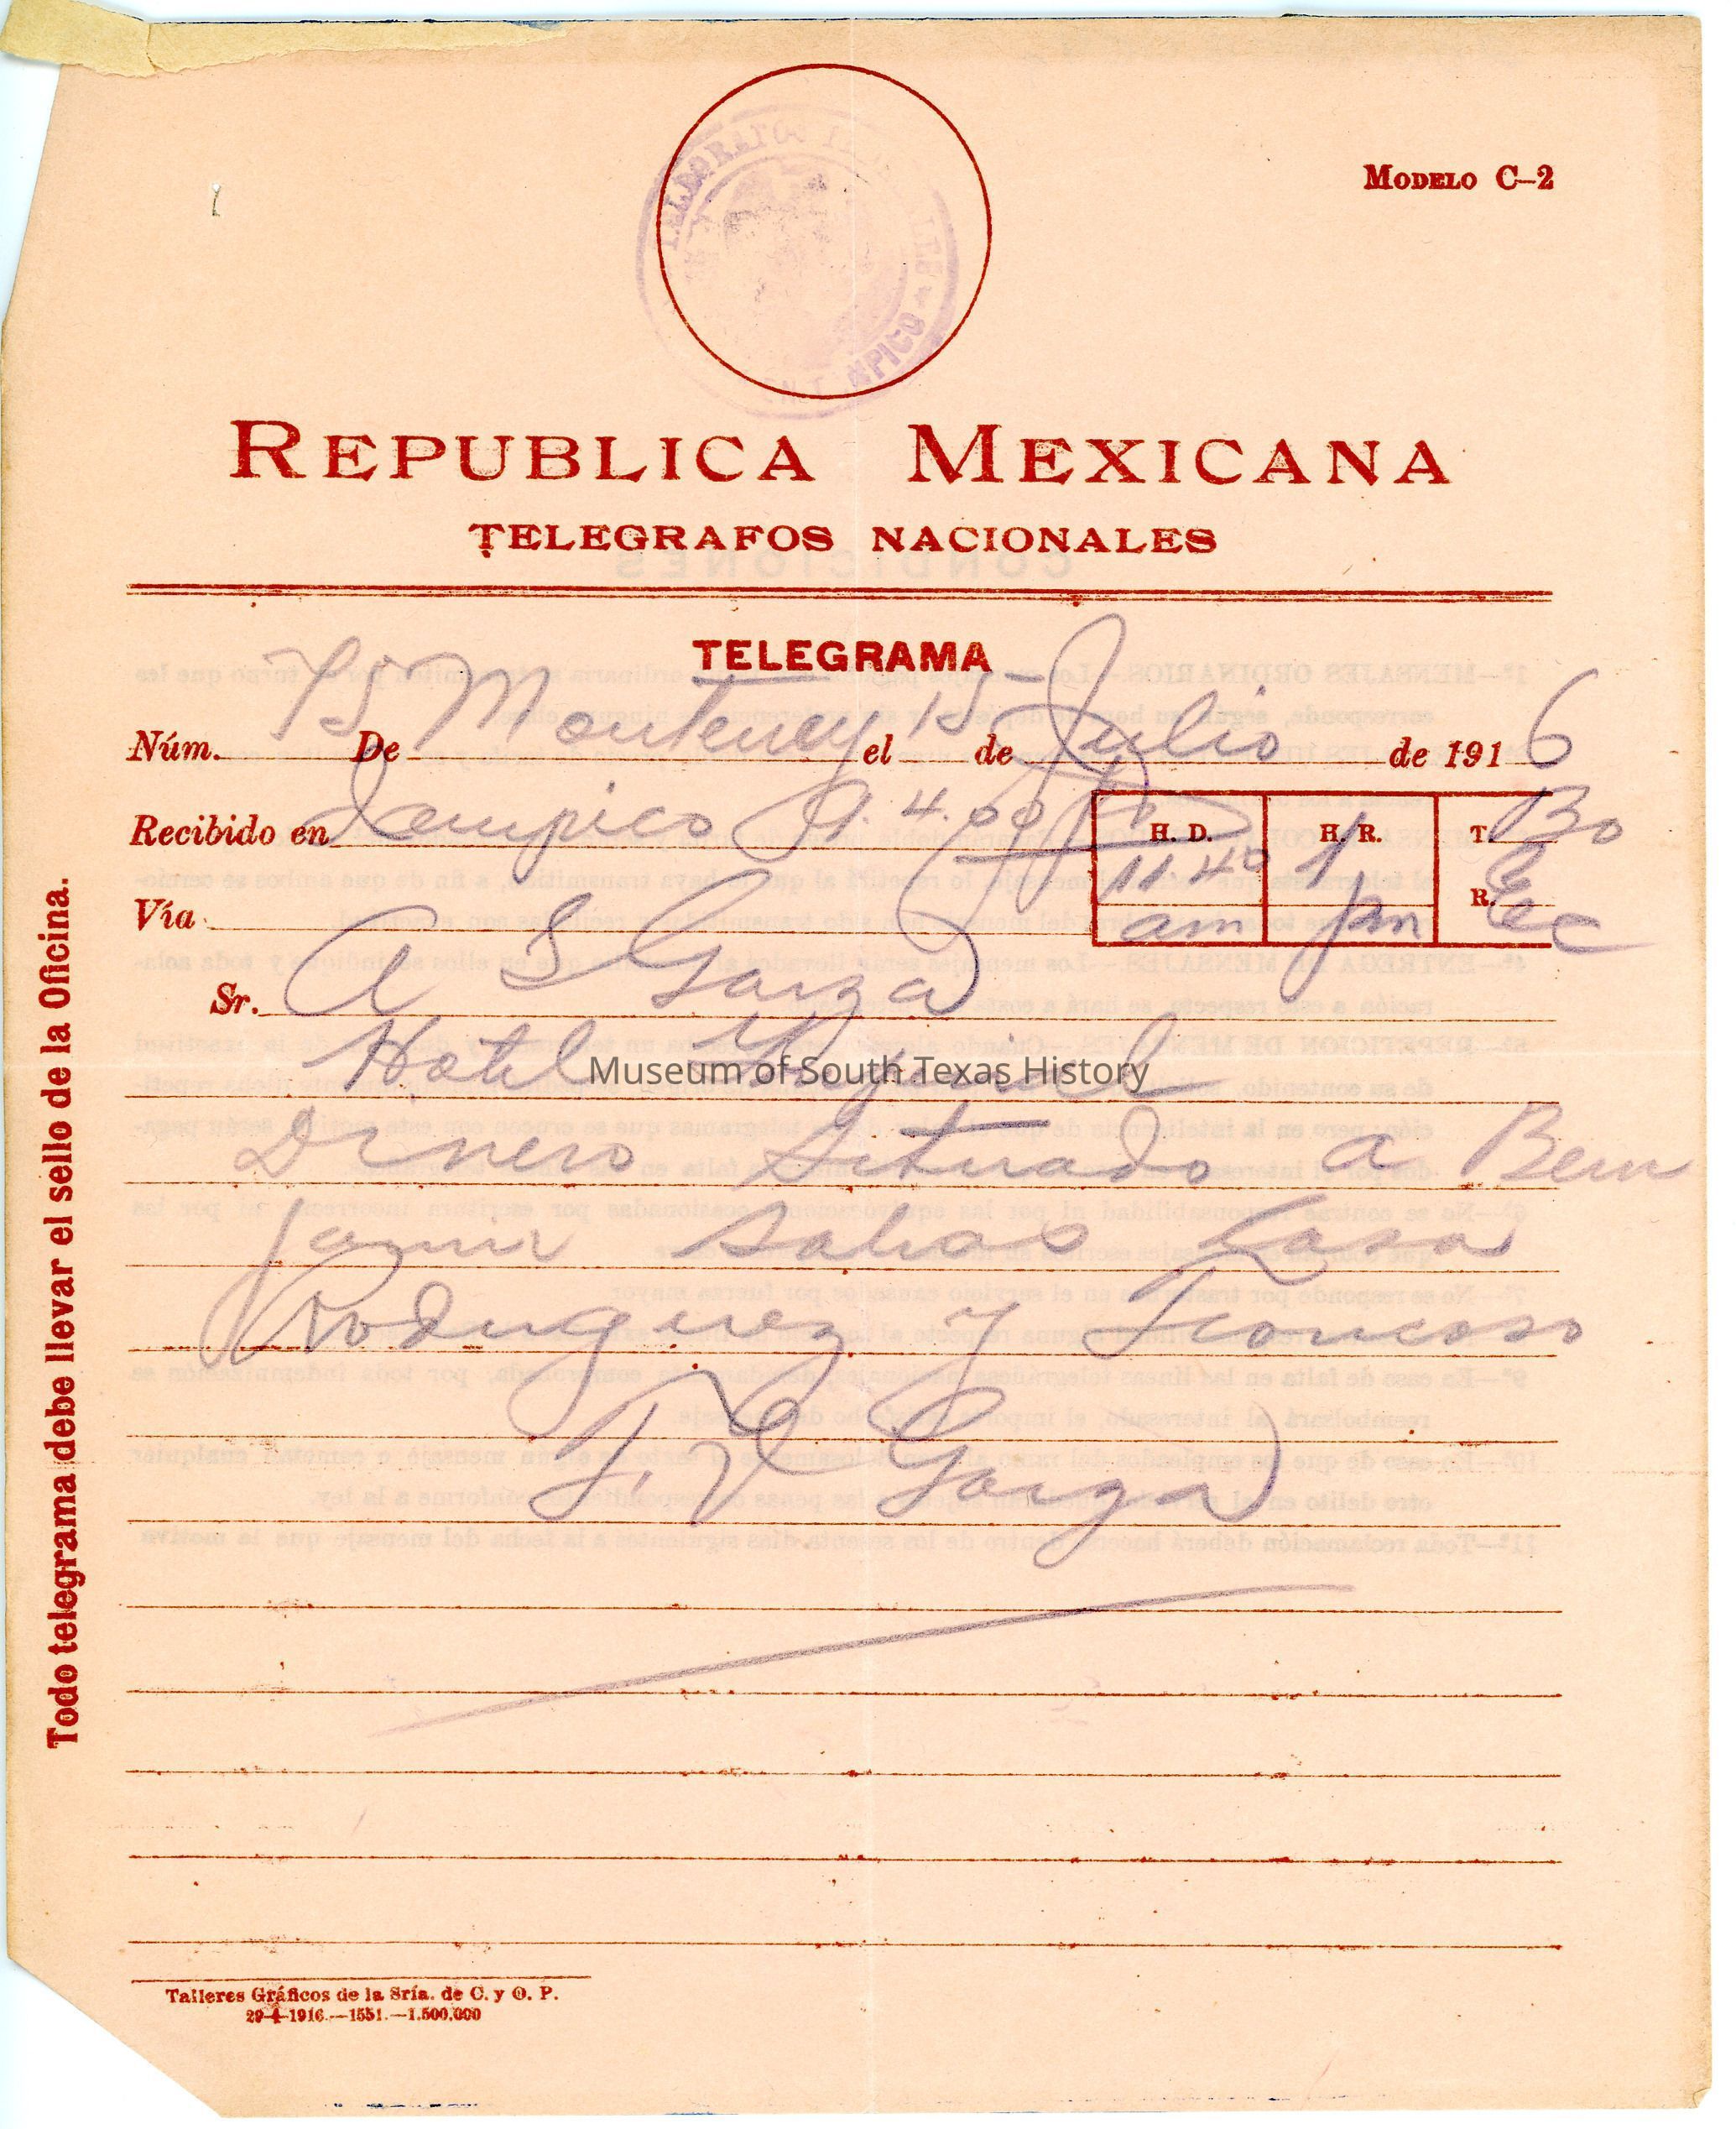 MODELO C-2
REPUBLICA MEXICANA
TELEGRAFOS NACIONALES
TELEGRAMA
Núm. 75 De Monterrey el 15 de Julio de 1916
Recibido en Tampico 4.00
H. D. H. R. T. Bo
11 40 1 R. Ec
am pm
Vía
Sr. A S Garza
Hotel
Museum of South Texas History
Dinero Situado a Ben
jamin Salinas Casa
Rodriguez y Troncoso
T. V Garza
Todo telegrama debe llevar el sello de la Oficina.
Talleres Gráficos de la Sría. de C. y O. P.
29-4-1916.—1551.—1.500,000